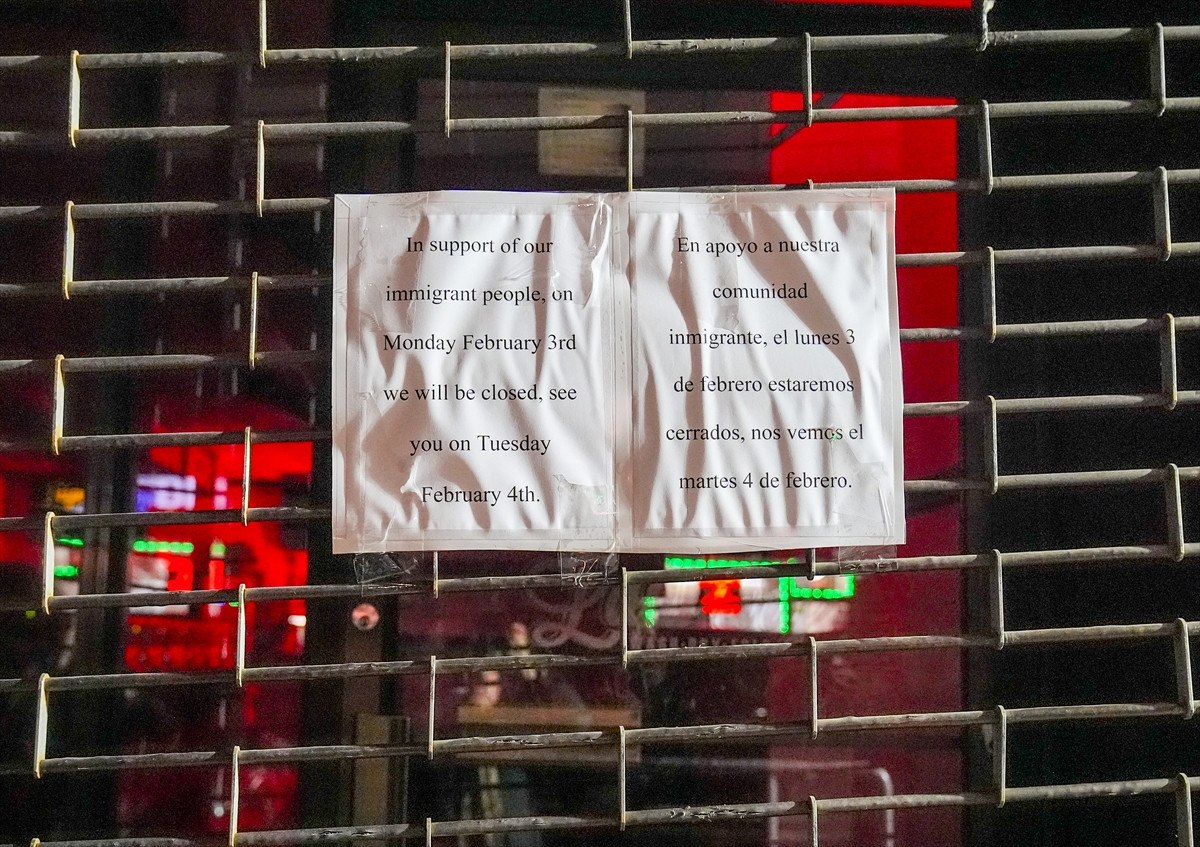 In support of our
immigrant people, on
Monday February 3rd
we will be closed, see
you on Tuesday
February 4th.
En apoyo a nuestra
comunidad
inmigrante, el lunes 3
de febrero estaremos
cerrados, nos vemos el
martes 4 de febrero.